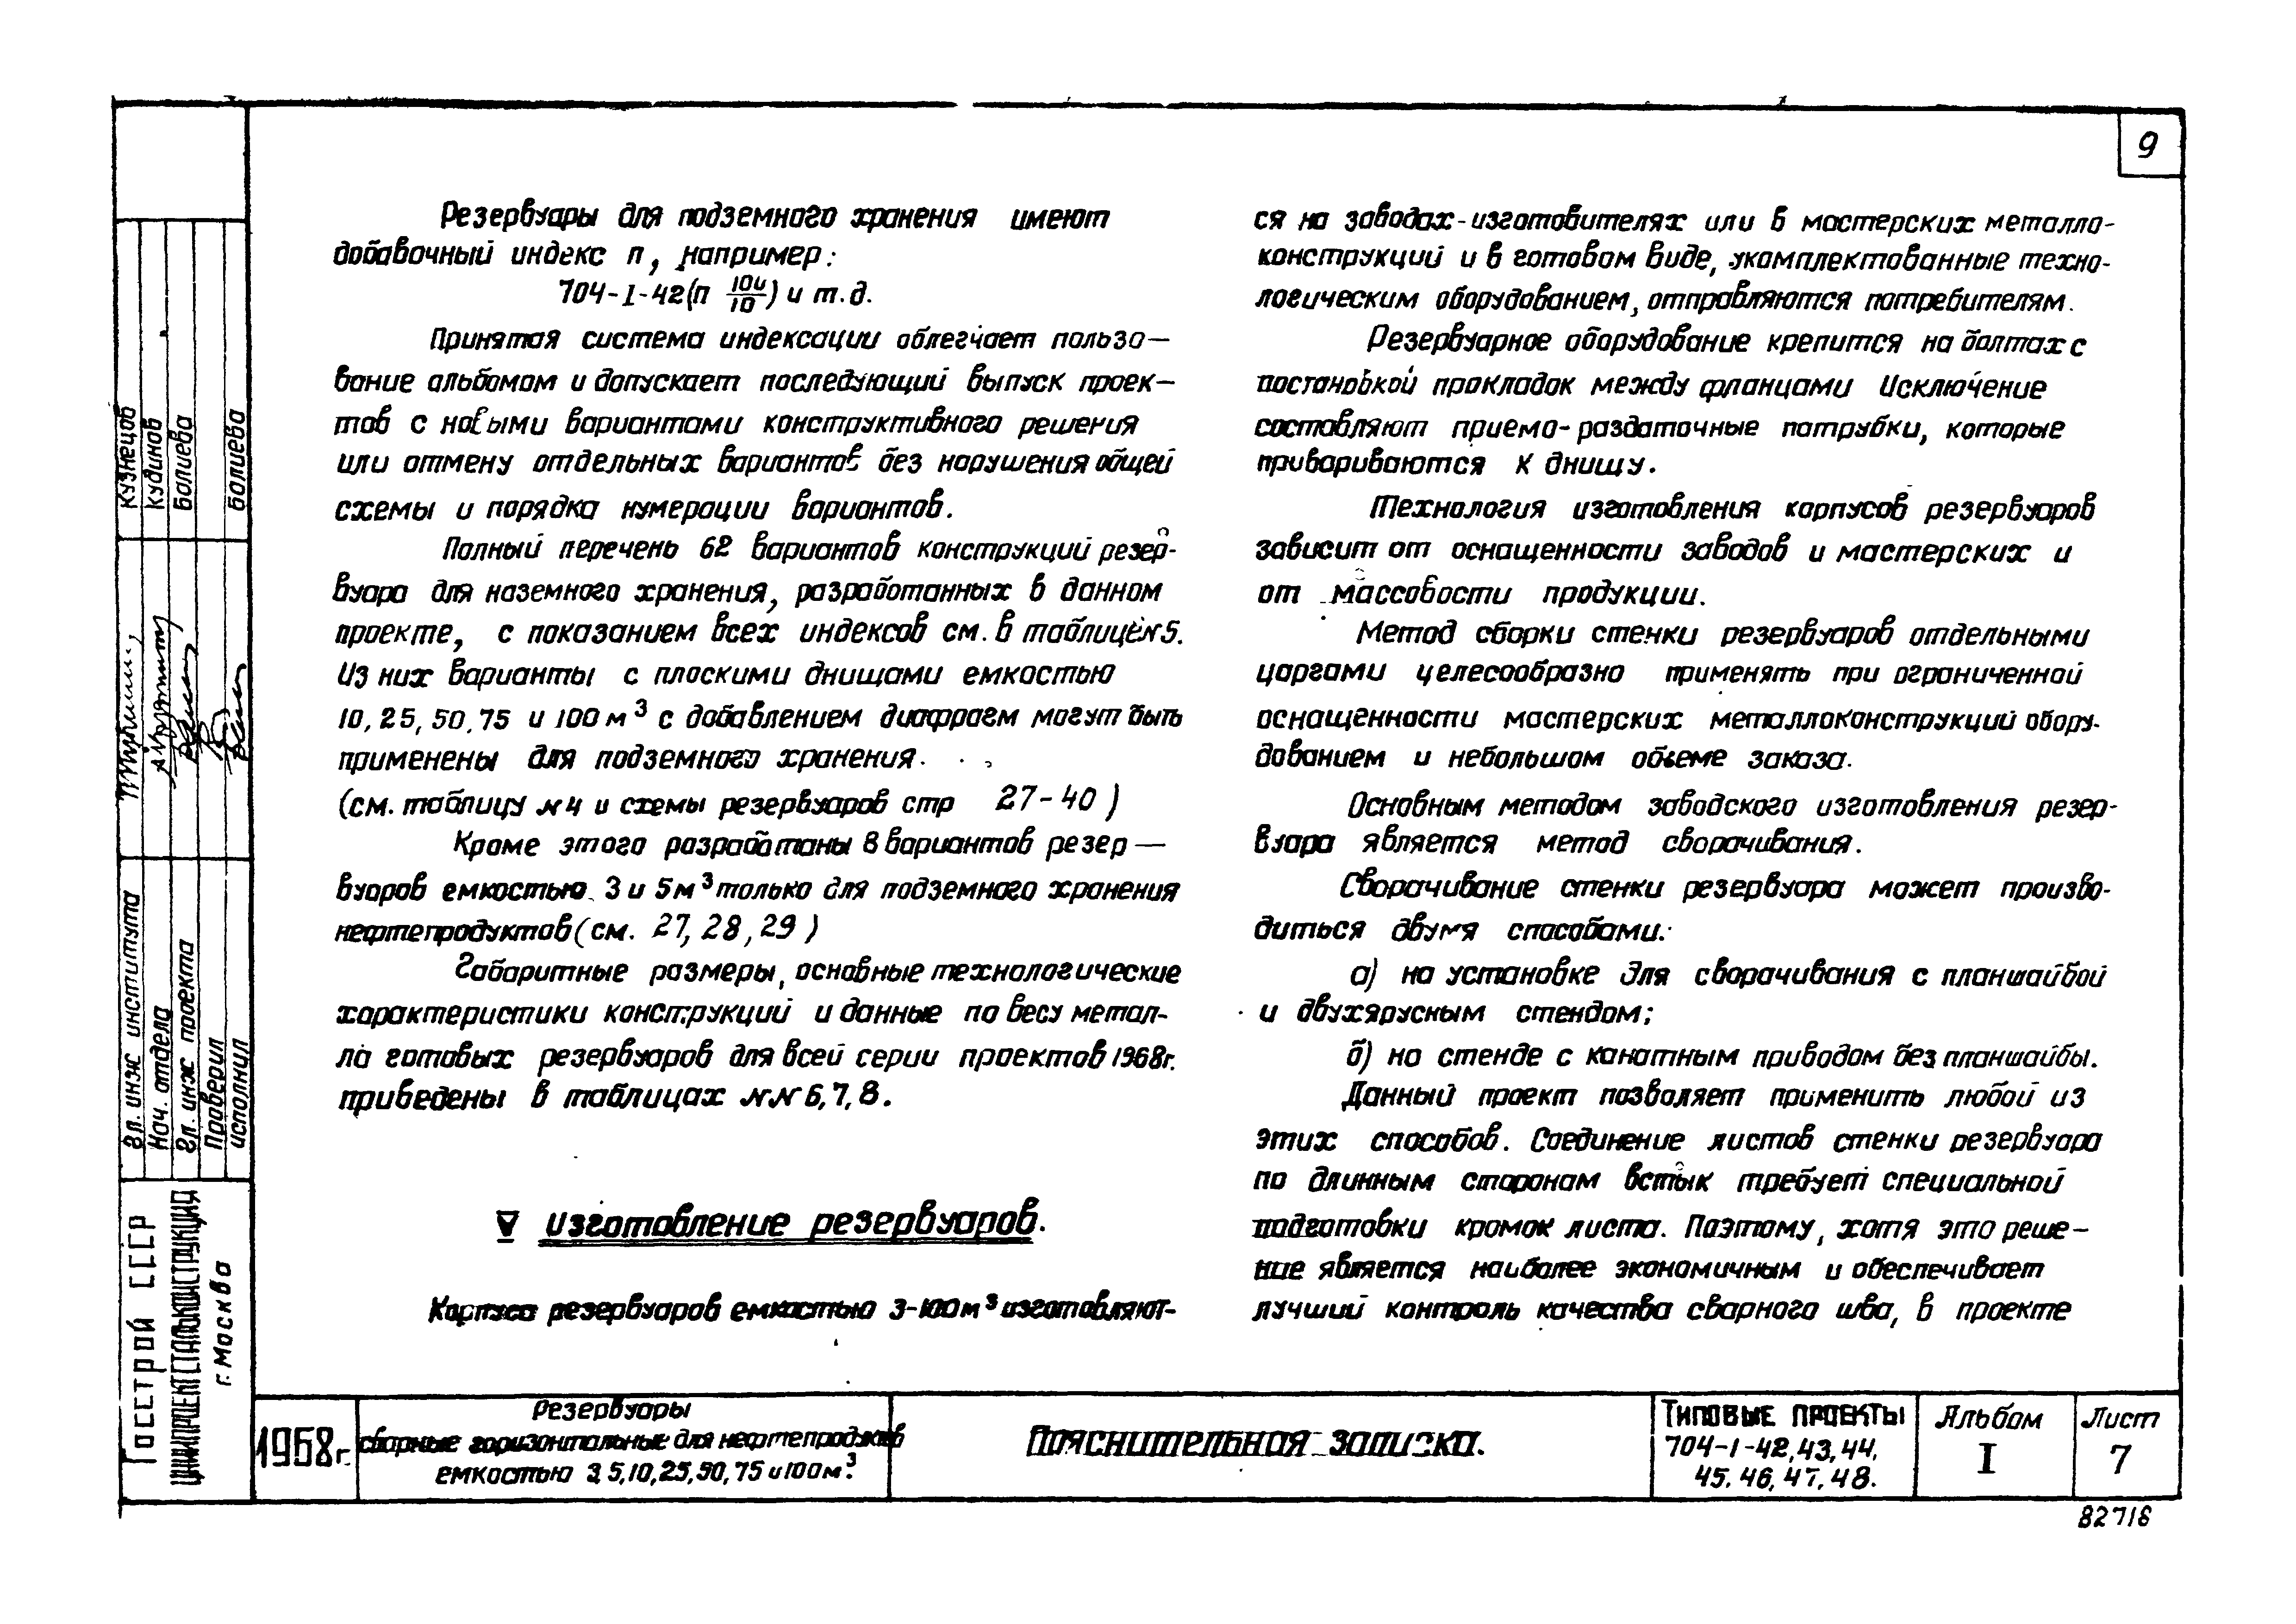 9
Резервуары для подземного хранения имеют
добавочный индекс п, например:
704-I-42(п 104/10) и т.д.
Принятая система индексации облегчает пользо-
вание альбомом и допускает последующий выпуск проек-
тов с новыми вариантами конструктивного решения
или отмену отдельных вариантов без нарушения общей
схемы и порядка нумерации вариантов.
Полный перечень 62 вариантов конструкций резер-
вуара для наземного хранения, разработанных в данном
проекте, с показанием всех индексов см. в таблице №5.
Из них варианты с плоскими днищами емкостью
10, 25, 50, 75 и 100 м³ с добавлением диафрагм могут быть
применены для подземного хранения.
(см. таблицу №4 и схемы резервуаров стр 27-40)
Кроме этого разработаны 8 вариантов резер-
вуаров емкостью 3 и 5 м³ только для подземного хранения
нефтепродуктов (см. 27, 28, 29)
Габаритные размеры, основные технологические
характеристики конструкций и данные по весу метал-
ла готовых резервуаров для всей серии проектов 1968г.
приведены в таблицах №№ 6, 7, 8.
V изготовление резервуаров.
Корпуса резервуаров емкостью 3-100 м³ изготовляют-
ся на заводах-изготовителях или в мастерских металло-
конструкций и в готовом виде, укомплектованные техно-
логическим оборудованием, отправляются потребителям.
Резервуарное оборудование крепится на болтах с
постановкой прокладок между фланцами Исключение
составляют приемо-раздаточные патрубки, которые
привариваются к днищу.
Технология изготовления корпусов резервуаров
зависит от оснащенности заводов и мастерских и
от массовости продукции.
Метод сборки стенки резервуаров отдельными
царгами целесообразно применять при ограниченной
оснащенности мастерских металлоконструкций обору-
дованием и небольшом объеме заказа.
Основным методом заводского изготовления резер-
вуара является метод сворачивания.
Сворачивание стенки резервуара может произво-
диться двумя способами:
а) на установке для сворачивания с планшайбой
и двухярусным стендом;
б) на стенде с канатным приводом без планшайбы.
Данный проект позволяет применить любой из
этих способов. Соединение листов стенки резервуара
по длинным сторонам встык требует специальной
подготовки кромок листа. Поэтому, хотя это реше-
ние является наиболее экономичным и обеспечивает
лучший контроль качества сварного шва, в проекте
Гл. инж института
Кузнецов
Нач. отдела
Кудинов
Гл. инж проекта
Балиева
Проверил
исполнил
Балиева
Госстрой СССР
ЦНИИПРОЕКТСТАЛЬКОНСТРУКЦИЯ
г. Москва
1968г.
Резервуары
сборные горизонтальные для нефтепродуктов
емкостью 3, 5, 10, 25, 50, 75 и 100 м³.
Пояснительная записка.
Типовые проекты
704-I-42, 43, 44,
45, 46, 47, 48.
Альбом
I
Лист
7
82718